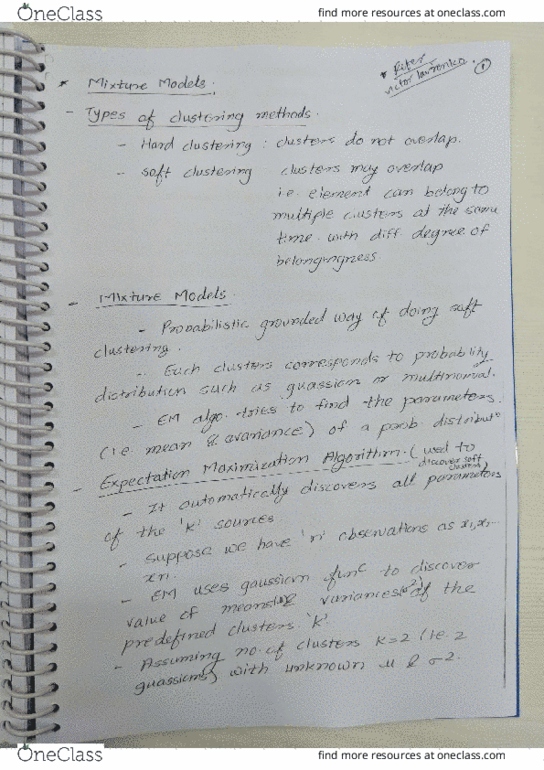 OneClass
find more resources at oneclass.com
* Refer
victor lavrenko. 1
* Mixture Models.
- Types of clustering methods.
- Hard clustering : clusters do not overlap.
- soft clustering clusters may overlap
i.e. element can belong to
multiple clusters at the same
time with diff. degree of
belongingness.
- Mixture Models.
- Probabilistic grounded way of doing soft
clustering.
- Each clusters corresponds to probability
distribution such as guassian or multinomial.
- EM algo. tries to find the parameters.
(i.e. mean & avariance) of a prob. distribut
- Expectation Maximization Algorithm. (used to
discover soft
clusters)
- It automatically discovers all parameters
of the 'k' sources.
- Suppose we have 'n' observations as x1, x2...
xn.
- EM uses gaussian func to discover
value of means & variances (σ²) of the
predefined clusters 'k'.
- Assuming no. of clusters k=2 (i.e. 2
guassians) with unknown μ & σ2.
OneClass
find more resources at oneclass.com